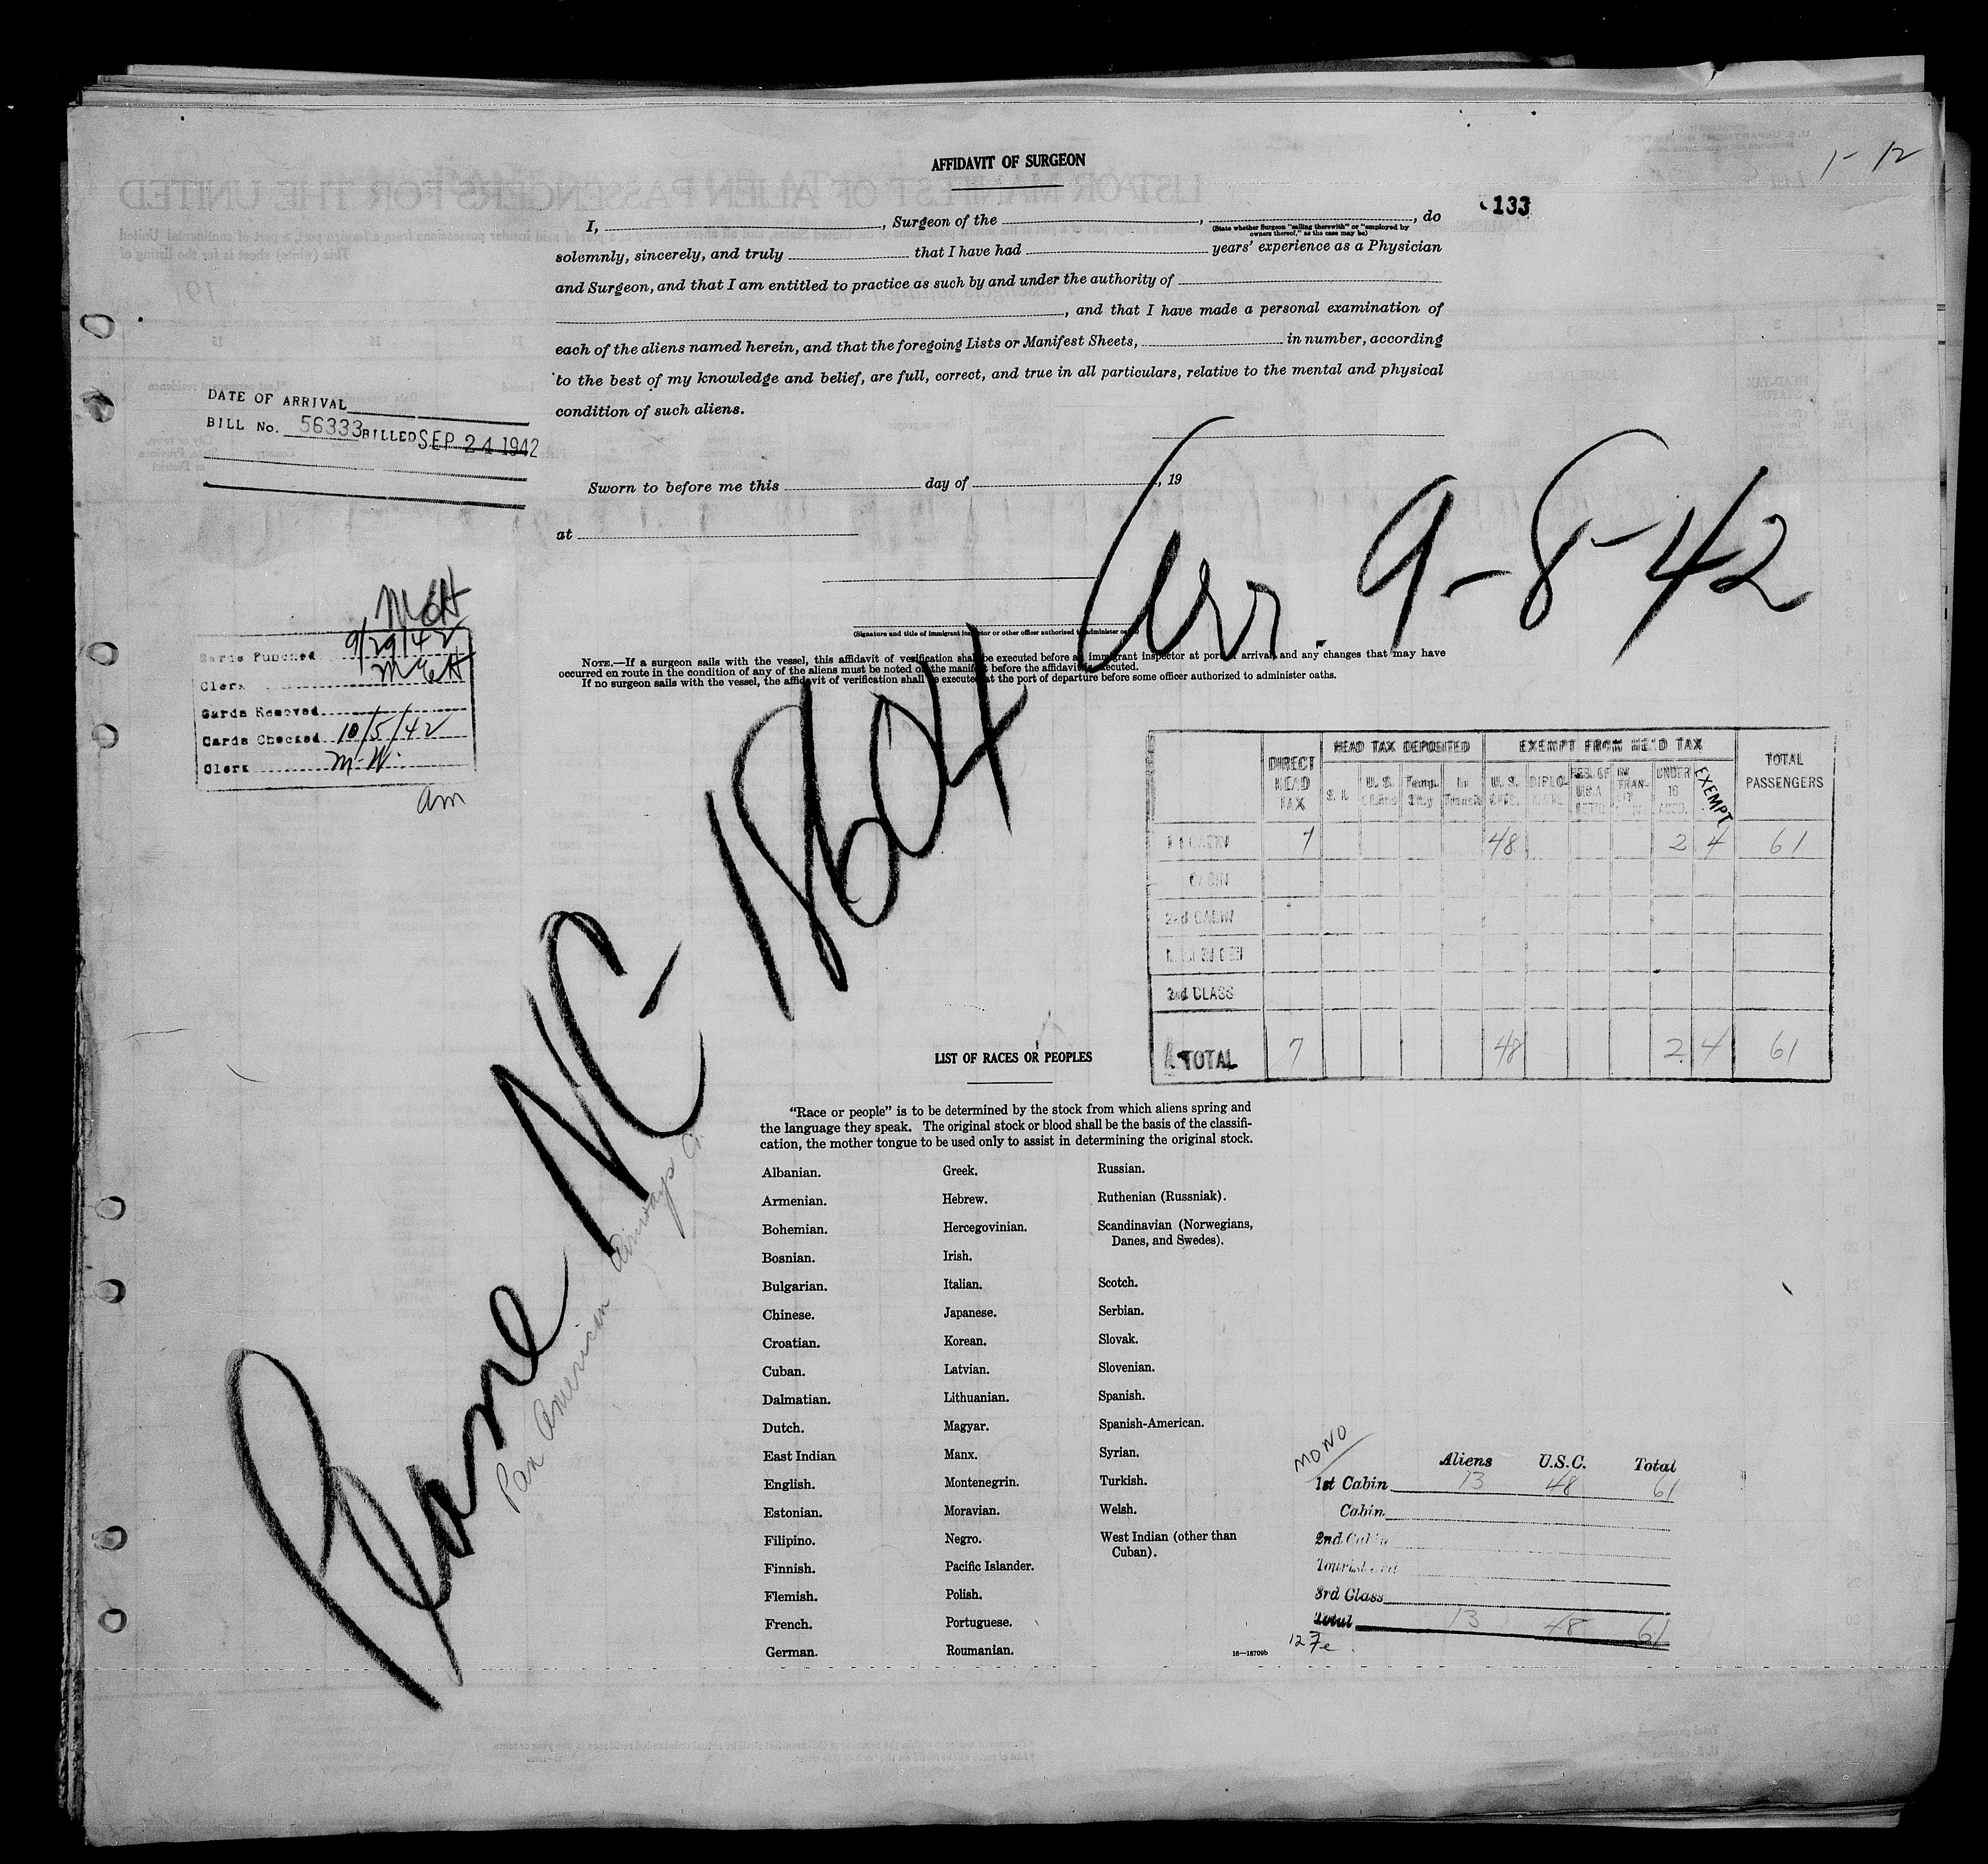 AFFIDAVIT OF SURGEON
1-12
133
I, , Surgeon of the , , do
(State whether Surgeon "sailing therewith" or "employed by
owners thereof," as the case may be)
solemnly, sincerely, and truly that I have had years' experience as a Physician
and Surgeon, and that I am entitled to practice as such by and under the authority of
, and that I have made a personal examination of
each of the aliens named herein, and that the foregoing Lists or Manifest Sheets, in number, according
to the best of my knowledge and belief, are full, correct, and true in all particulars, relative to the mental and physical
condition of such aliens.
DATE OF ARRIVAL
BILL No. 56333 BILLED SEP 24 1942
Sworn to before me this day of , 19
at
Arr. 9-8-42
(Signature and title of immigrant inspector or other officer authorized to administer oaths)
NOTE.—If a surgeon sails with the vessel, this affidavit of verification shall be executed before an immigrant inspector at port of arrival, and any changes that may have
occurred en route in the condition of any of the aliens must be noted on the manifest before the affidavit is executed.
If no surgeon sails with the vessel, the affidavit of verification shall be executed at the port of departure before some officer authorized to administer oaths.
McH
Cards Punched 9/29/42
Clerk McH
Cards Removed
Cards Checked 10/5/42
Clerk M-W.
am
Plane NC-18604
Pan American Airways Co.
DIRECT HEAD TAX
HEAD TAX DEPOSITED
EXEMPT FROM HEAD TAX
TOTAL PASSENGERS
S. I. U. S. Temp. Stay In Transit U. S. RES. OF U.S.A. IN TRAN-IT UNDER 16 EXEMPT
7 48 2 4 61
CABIN
2nd CABIN
2nd CLASS
TOTAL 7 48 2 4 61
LIST OF RACES OR PEOPLES
"Race or people" is to be determined by the stock from which aliens spring and
the language they speak. The original stock or blood shall be the basis of the classifi-
cation, the mother tongue to be used only to assist in determining the original stock.
Albanian.
Armenian.
Bohemian.
Bosnian.
Bulgarian.
Chinese.
Croatian.
Cuban.
Dalmatian.
Dutch.
East Indian
English.
Estonian.
Filipino.
Finnish.
Flemish.
French.
German.
Greek.
Hebrew.
Hercegovinian.
Irish.
Italian.
Japanese.
Korean.
Latvian.
Lithuanian.
Magyar.
Manx.
Montenegrin.
Moravian.
Negro.
Pacific Islander.
Polish.
Portuguese.
Roumanian.
Russian.
Ruthenian (Russniak).
Scandinavian (Norwegians,
Danes, and Swedes).
Scotch.
Serbian.
Slovak.
Slovenian.
Spanish.
Spanish-American.
Syrian.
Turkish.
Welsh.
West Indian (other than
Cuban).
16—18709b
MONO
Aliens U.S.C. Total
1st Cabin 13 48 61
Cabin
2nd Cabin
3rd Class
Total 13 48 61